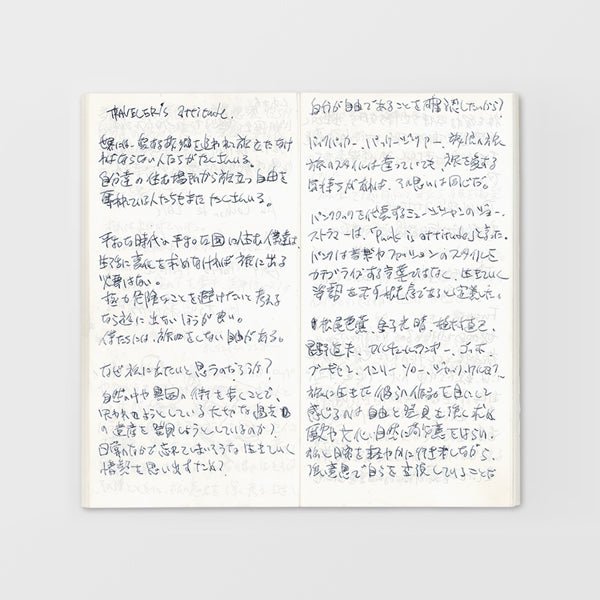 TRAVELER'S attitude.
世界には、愛する故郷を追われ、旅をしなけ
ればならない人たちがたくさんいる。
自分達の住む場所から旅立つ自由を
奪われている人たちもまたたくさんいる。
平和な時代の平和な国に住む僕達は、
生活に変化を求めなければ旅に出る
必要はない。
極力危険なことを避けたいと考える
なら旅に出ないほうが良い。
僕たちには、旅をしない自由がある。
なぜ旅に出たいと思うのだろうか?
自然の中や異国の街を歩くことで、
失われようとしている大切な過去
の遺産を発見しようとしているのか?
日常のなかで忘れてしまいそうな生きていく
情熱を思い出すため?
自分が自由であることを確認したいから?
バックパッカー、バッパー、旅
旅のスタイルは違っていても、旅を愛する
気持ちがあれば、その思いは同じだ。
パンクロックを代表するミュージシャンのジョー・
ストラマーは、「Punk is attitude」と言った。
パンクは音楽やファッションのスタイルを
カテゴライズする言葉ではなく、生きていく
姿勢を示す言葉であると定義した。
松尾芭蕉、金子光晴、植村直己、
星野道夫、ブルース・チャトウィン、ゴッホ、
ゴーギャン、ヘンリー・ソロー、ジャック・ケルアック
旅に生きた彼らの作品を目にして
感じるのは自由と発見を強く求め
歴史や文化、自然に敬意をはらい、
旅と日常を軽やかに行き来しながら、
強い意思で自らを表現していることだ